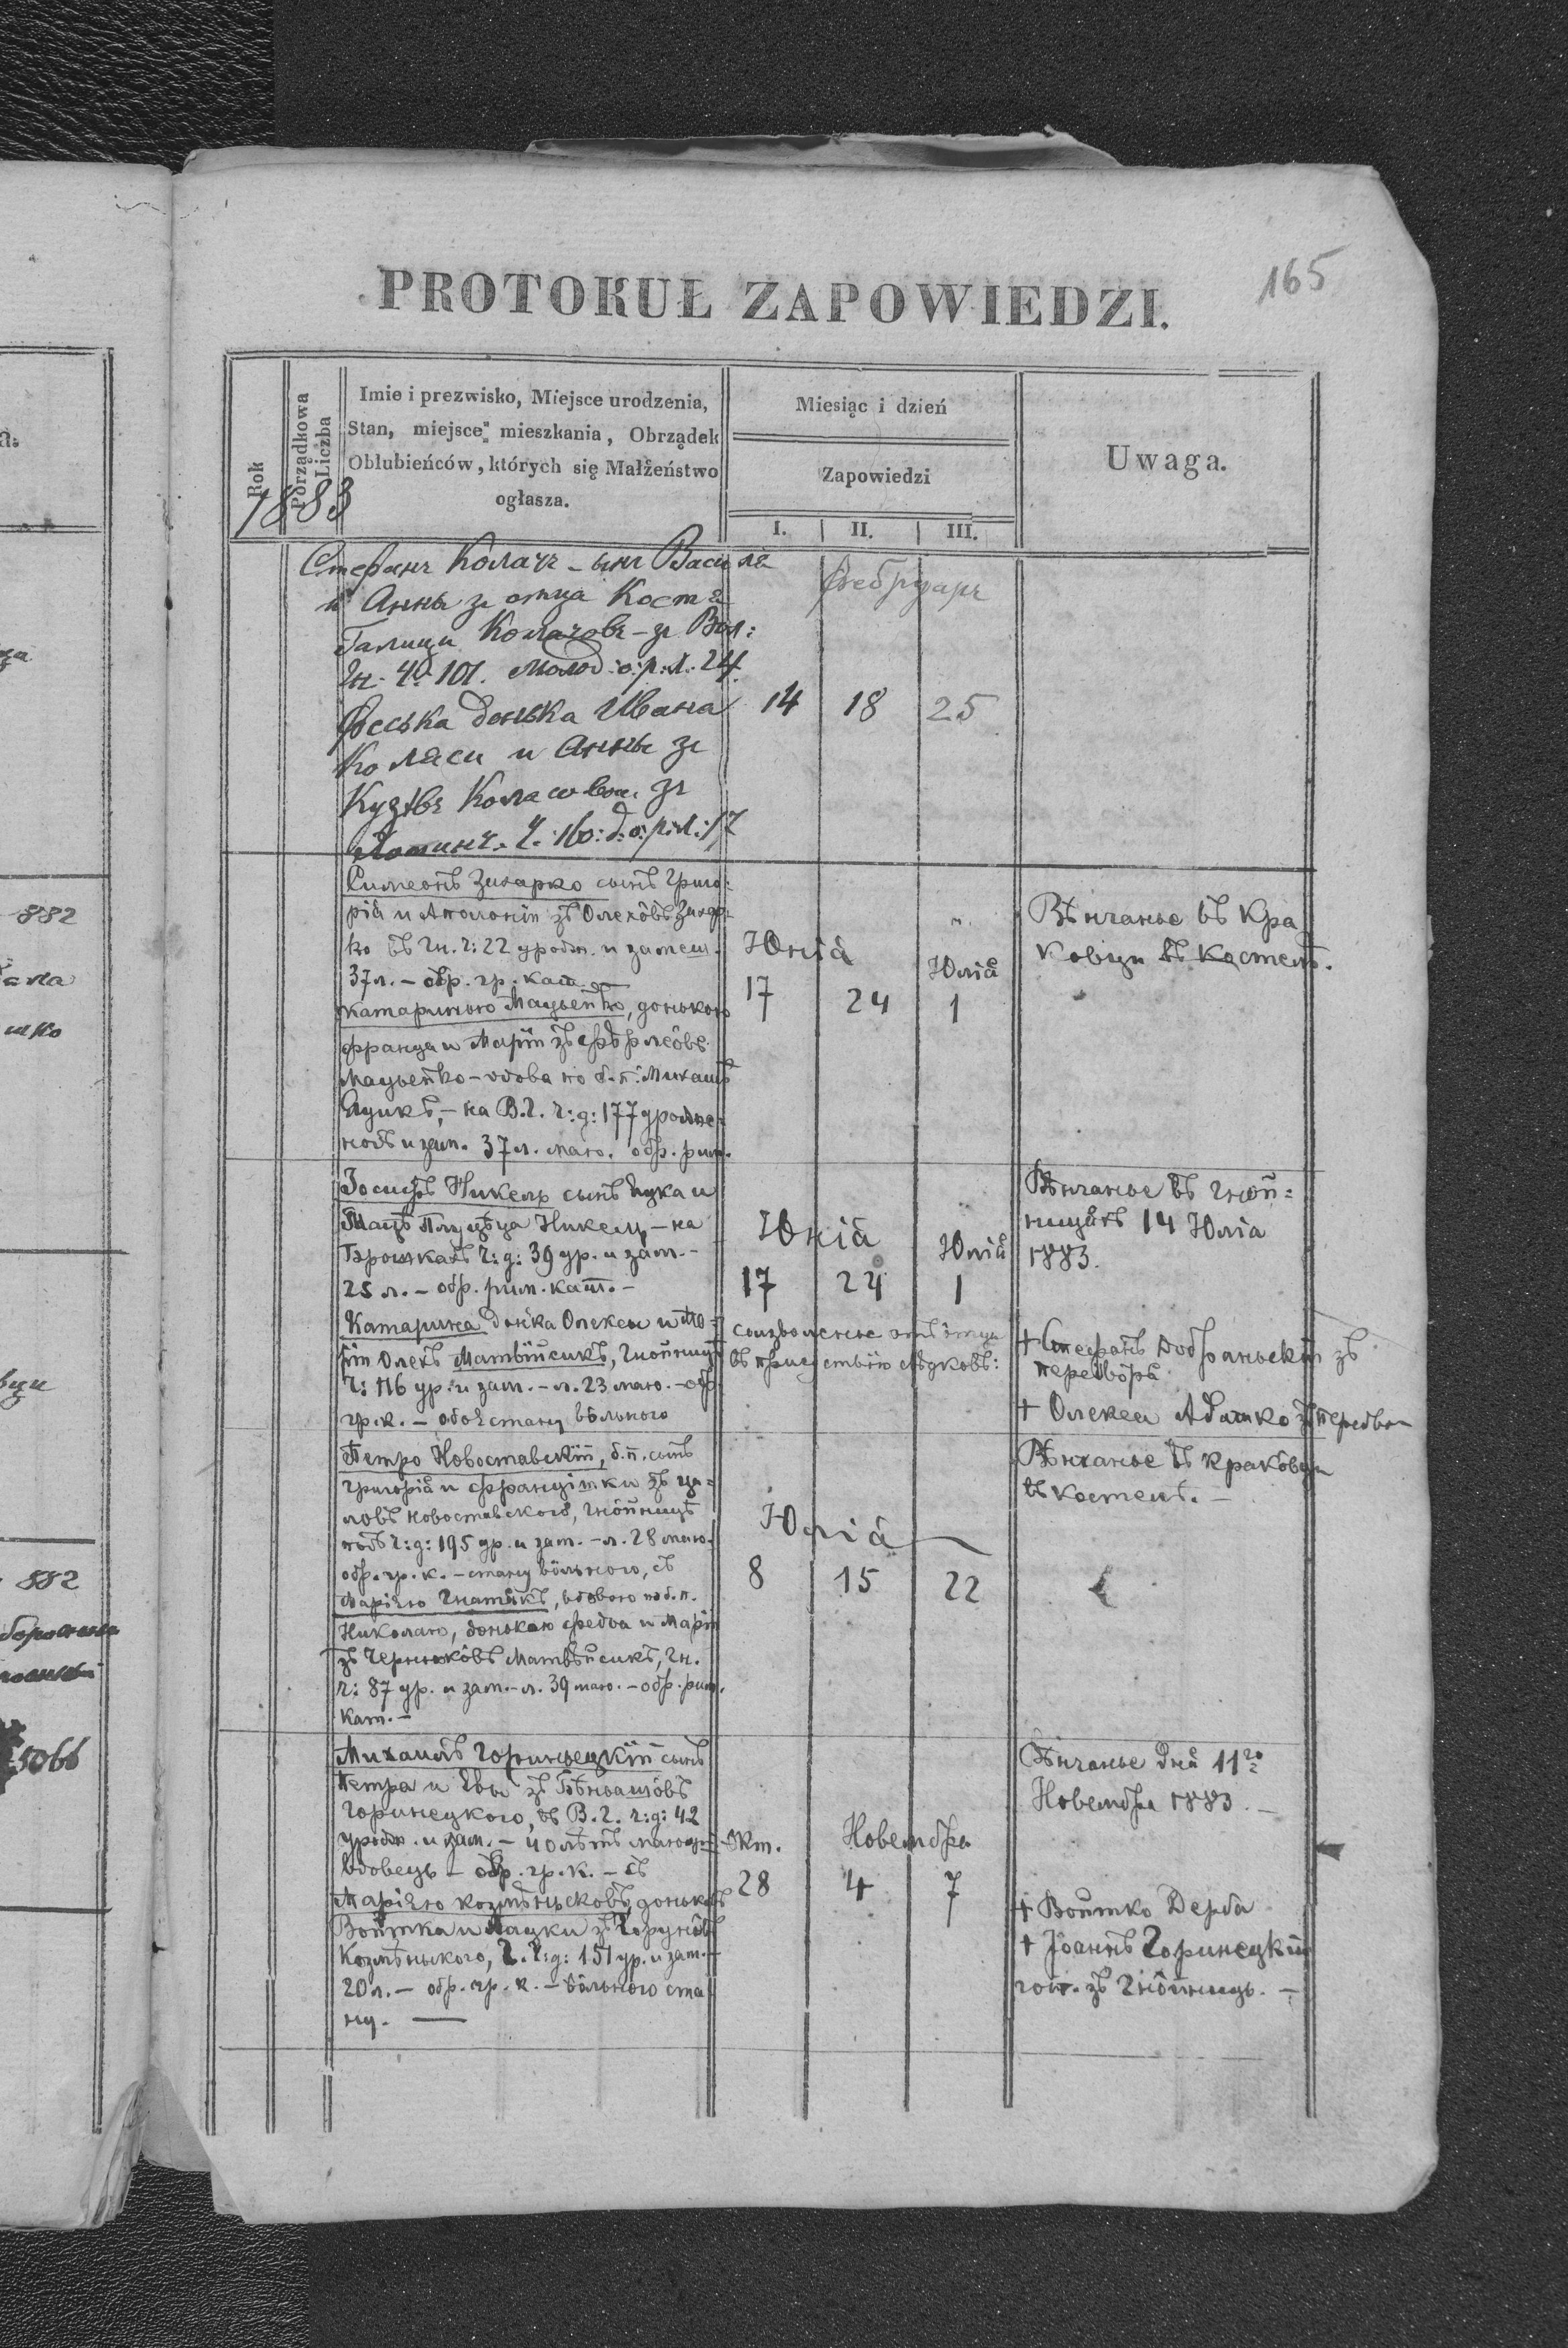 165
PROTOKUŁ ZAPOWIEDZI.
Rok
Porządkowa
Liczba
Imie i prezwisko, Miejsce urodzenia,
Stan, miejsce mieszkania, Obrządek
Oblubieńców, których się Małżeństwo
ogłasza.
Miesiąc i dzień
Zapowiedzi
I. II. III.
Uwaga.
1883
Стефанъ Колачъ - сынъ Василя
и Анны зъ отца Костя
Галици Колачовъ - зъ Вол:
Гн. Ч. 101. Молод: о: р: л: 24
Феська донька Ивана
Коляси и Анны зъ
Кузѣвъ зъ
Ч. 160: д: о: р: л: 17
Фебруаръ
14 18 25
Симеонъ Захарко сынъ Григо:
рія и Аполоніи зъ Олехôвъ Захар-
ко въ Гн. ч: 22 уродж. и замеш.
37 л. - обр. гр. кат.
Катариною Мацьейко, донькою
Франца и Маріи зъ
Мацьейко - вдова по б. п. Михаилѣ
Яцикъ, - на В. Г. ч: д: 177 уродже-
ноѣ и зам. 37 л. маю. обр. рим.
Юнія Юлія
17 24 1
Вѣнчанье въ Кра
ковци въ Костелѣ.
Іосифъ Никель сынъ Яцка и
Никель - на
Брошкахъ ч: д: 39 ур. и зам. -
25 л. - обр. рим. кат. -
Катарина донька Олексы и Ма-
ріи Олехъ Матвійсикъ, Гнойницѣ
ч: 116 ур: и зам. - л. 23 маю. - обр.
гр. к. - обоє стану вôльного
Юнія Юлія
17 24 1
соизволенье отъ отца
въ присутствію свѣдковъ:
Вѣнчанье въ Гной=
ницяхъ 14 Юлія
1883.
+ Стефанъ Добраньскій зъ
передвôря
+ Олекса Адамко зъ Передво
Петро Новоставскій, б. п. сынъ
Григорія и Францішки зъ Ца=
повъ Новоставского, Гнойницѣ
подъ ч: д: 195 ур. и зам. - л. 28 маю.
обр. гр. к. - стану вôльного, съ
Марією Гнатикъ, вдовою по б. п.
Николаю, донькою Федва и Маріи
зъ Чернюковъ Матвѣйсикъ, Гн.
ч: 87 ур. и зам. - л. 39 маю. - обр. рим.
кат. -
Юлія
8 15 22
Вѣнчанье въ Краковци
въ костелѣ. -
Михаилъ Горинецкій сынъ
Петра и Евы зъ Бѣньашôвъ
Горинецкого, въ В. Г. ч: д: 42
уродж. и зам. - 40 лѣтъ маючій
вдовець - обр. гр. к. - съ
Марією Козмѣньсковъ, донькою
Войтка и Пазки зъ
Козмѣнького, Г. ч: д: 151 ур. и зам. -
20 л. - обр. гр. к. - вôльного ста
ну. -
Окт. Новембра
28 4 7
Вѣнчанье дня 11го
Новембра 1883. -
+ Войтко Дерба
+ Іоаннъ Горинецкій
госп. зъ Гнôйниць. -
882
882